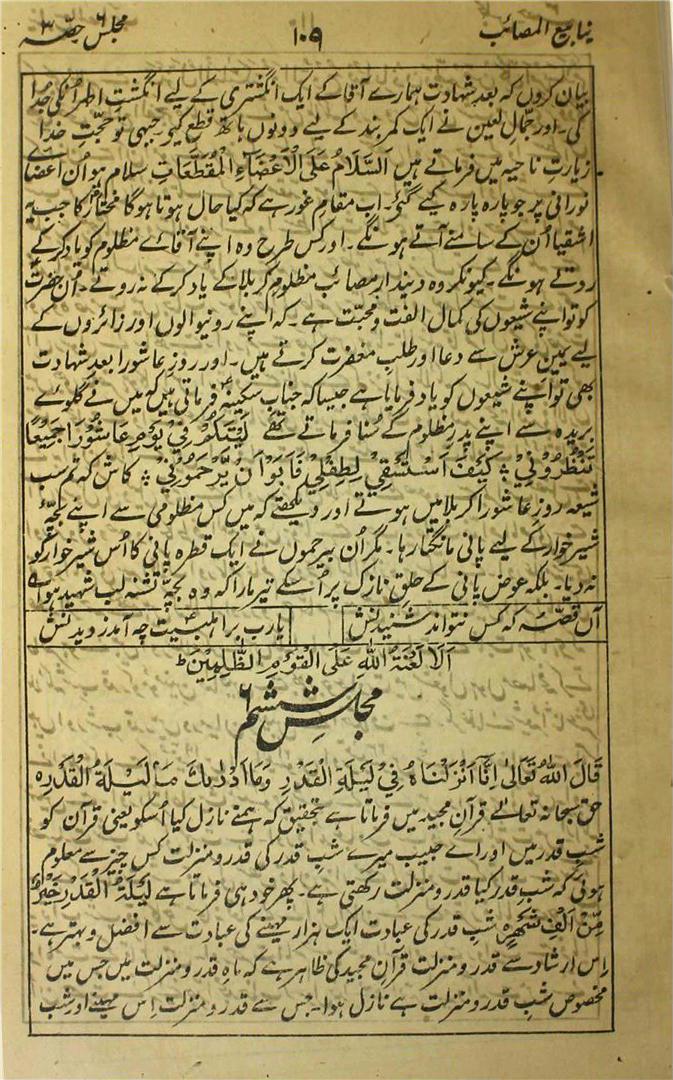 ینابیع المصائب
۱۰۹
مجلس ۶ حصہ ۳
بیان کروں کہ بعد شہادت ہمارے آقا کے ایک انگشتری کے لیے انگشت اطہر اُنکی جُدا
کی۔ اور جمّال لعین نے ایک کمر بند کے لیے دونوں ہاتھ قطع کیو جبھی تو حجّتِ خدا
زیارتِ ناحیہ میں فرماتے ہیں اَلسَّلَامُ عَلَی الْاَعْضَاءِ الْمُقَطَّعَاتِ سلام ہو اُن اعضائے
نورانی پر جو پارہ پارہ کیے گئے۔ اب مقامِ غور ہے کہ کیا حال ہوتا ہوگا مختارؒ کا جب یہ
اشقیا اُن کے سامنے آتے ہونگے۔ اور کس طرح وہ اپنے آقائے مظلوم کو یاد کر کے
روتے ہونگے۔ کیونکر وہ دیندار مصائب مظلومِ کربلا کے یاد کر کے نہ روتے۔ اُن حضرتؑ
کو تو اپنے شیعوں کی کمال الفت و محبّت ہے۔ کہ اپنے رونیوالوں اور زائروں کے
لیے یمینِ عرش سے دعا اور طلبِ مغفرت کرتے ہیں۔ اور روزِ عاشورا بعد شہادت
بھی تو اپنے شیعوں کو یاد فرمایا ہے جیسا کہ جنابِ سکینہؑ فرماتی ہیں کہ میں نے گلوئے
بریدہ سے اپنے پدرِ مظلوم کے سُنا فرماتے تھے لَیْتَکُمْ فِیْ یَوْمِ عَاشُوْرَا جَمِیْعًا
تَنْظُرُوْنِیْ ؛ کَیْفَ اَسْتَسْقِیْ لِطِفْلِیْ فَاَبَوْا اَنْ یَّرْحَمُوْنِیْ ؛ کاش کہ تم سب
شیعہ روزِ عاشورا کربلا میں ہوتے اور دیکھتے کہ میں کس مظلومی سے اپنے بچّۂ
شیر خوار کے لیے پانی مانگتا رہا۔ مگر اُن بیرحموں نے ایک قطرہ پانی کا اُس شیر خوار کو
نہ دیا۔ بلکہ عوض پانی کے حلقِ نازک پر اُسکے تیر مارا کہ وہ بچّہ تشنہ لب شہید ہوا ہے
آں قصّہ کہ کس نتواند شنیدنش
یارب بر اہلبیت چہ آمد ز دیدنش
اَلَا لَعْنَةُ اللهِ عَلَی الْقَوْمِ الظّٰلِمِیْنَ ط
مجلسِ ششم ۶
قَالَ اللهُ تَعَالٰی اِنَّا اَنْزَلْنَاهُ فِیْ لَیْلَةِ الْقَدْرِ وَمَا اَدْرٰىكَ مَا لَیْلَةُ الْقَدْرِه
حق سبحانہ تعالےٰ قرآنِ مجید میں فرماتا ہے بتحقیق کہ ہمنے نازل کیا اُسکو یعنی قرآن کو
شبِ قدر میں اور اے حبیب میرے شبِ قدر کی قدر و منزلت کس چیز سے معلوم
ہوئی کہ شبِ قدر کیا قدر و منزلت رکھتی ہے۔ پھر خود ہی فرماتا ہے لَیْلَةُ الْقَدْرِ خَیْرٌ
مِّنْ اَلْفِ شَهْرٍه شبِ قدر کی عبادت ایک ہزار مہینے کی عبادت سے افضل و بہتر ہے۔
اِس ارشاد سے قدر و منزلت قرآنِ مجید کی ظاہر ہے کہ ماہِ قدر و منزلت میں جس میں
مخصوص شبِ قدر و منزلت ہے نازل ہوا۔ جس سے قدر و منزلت اِس مہینے اور شب